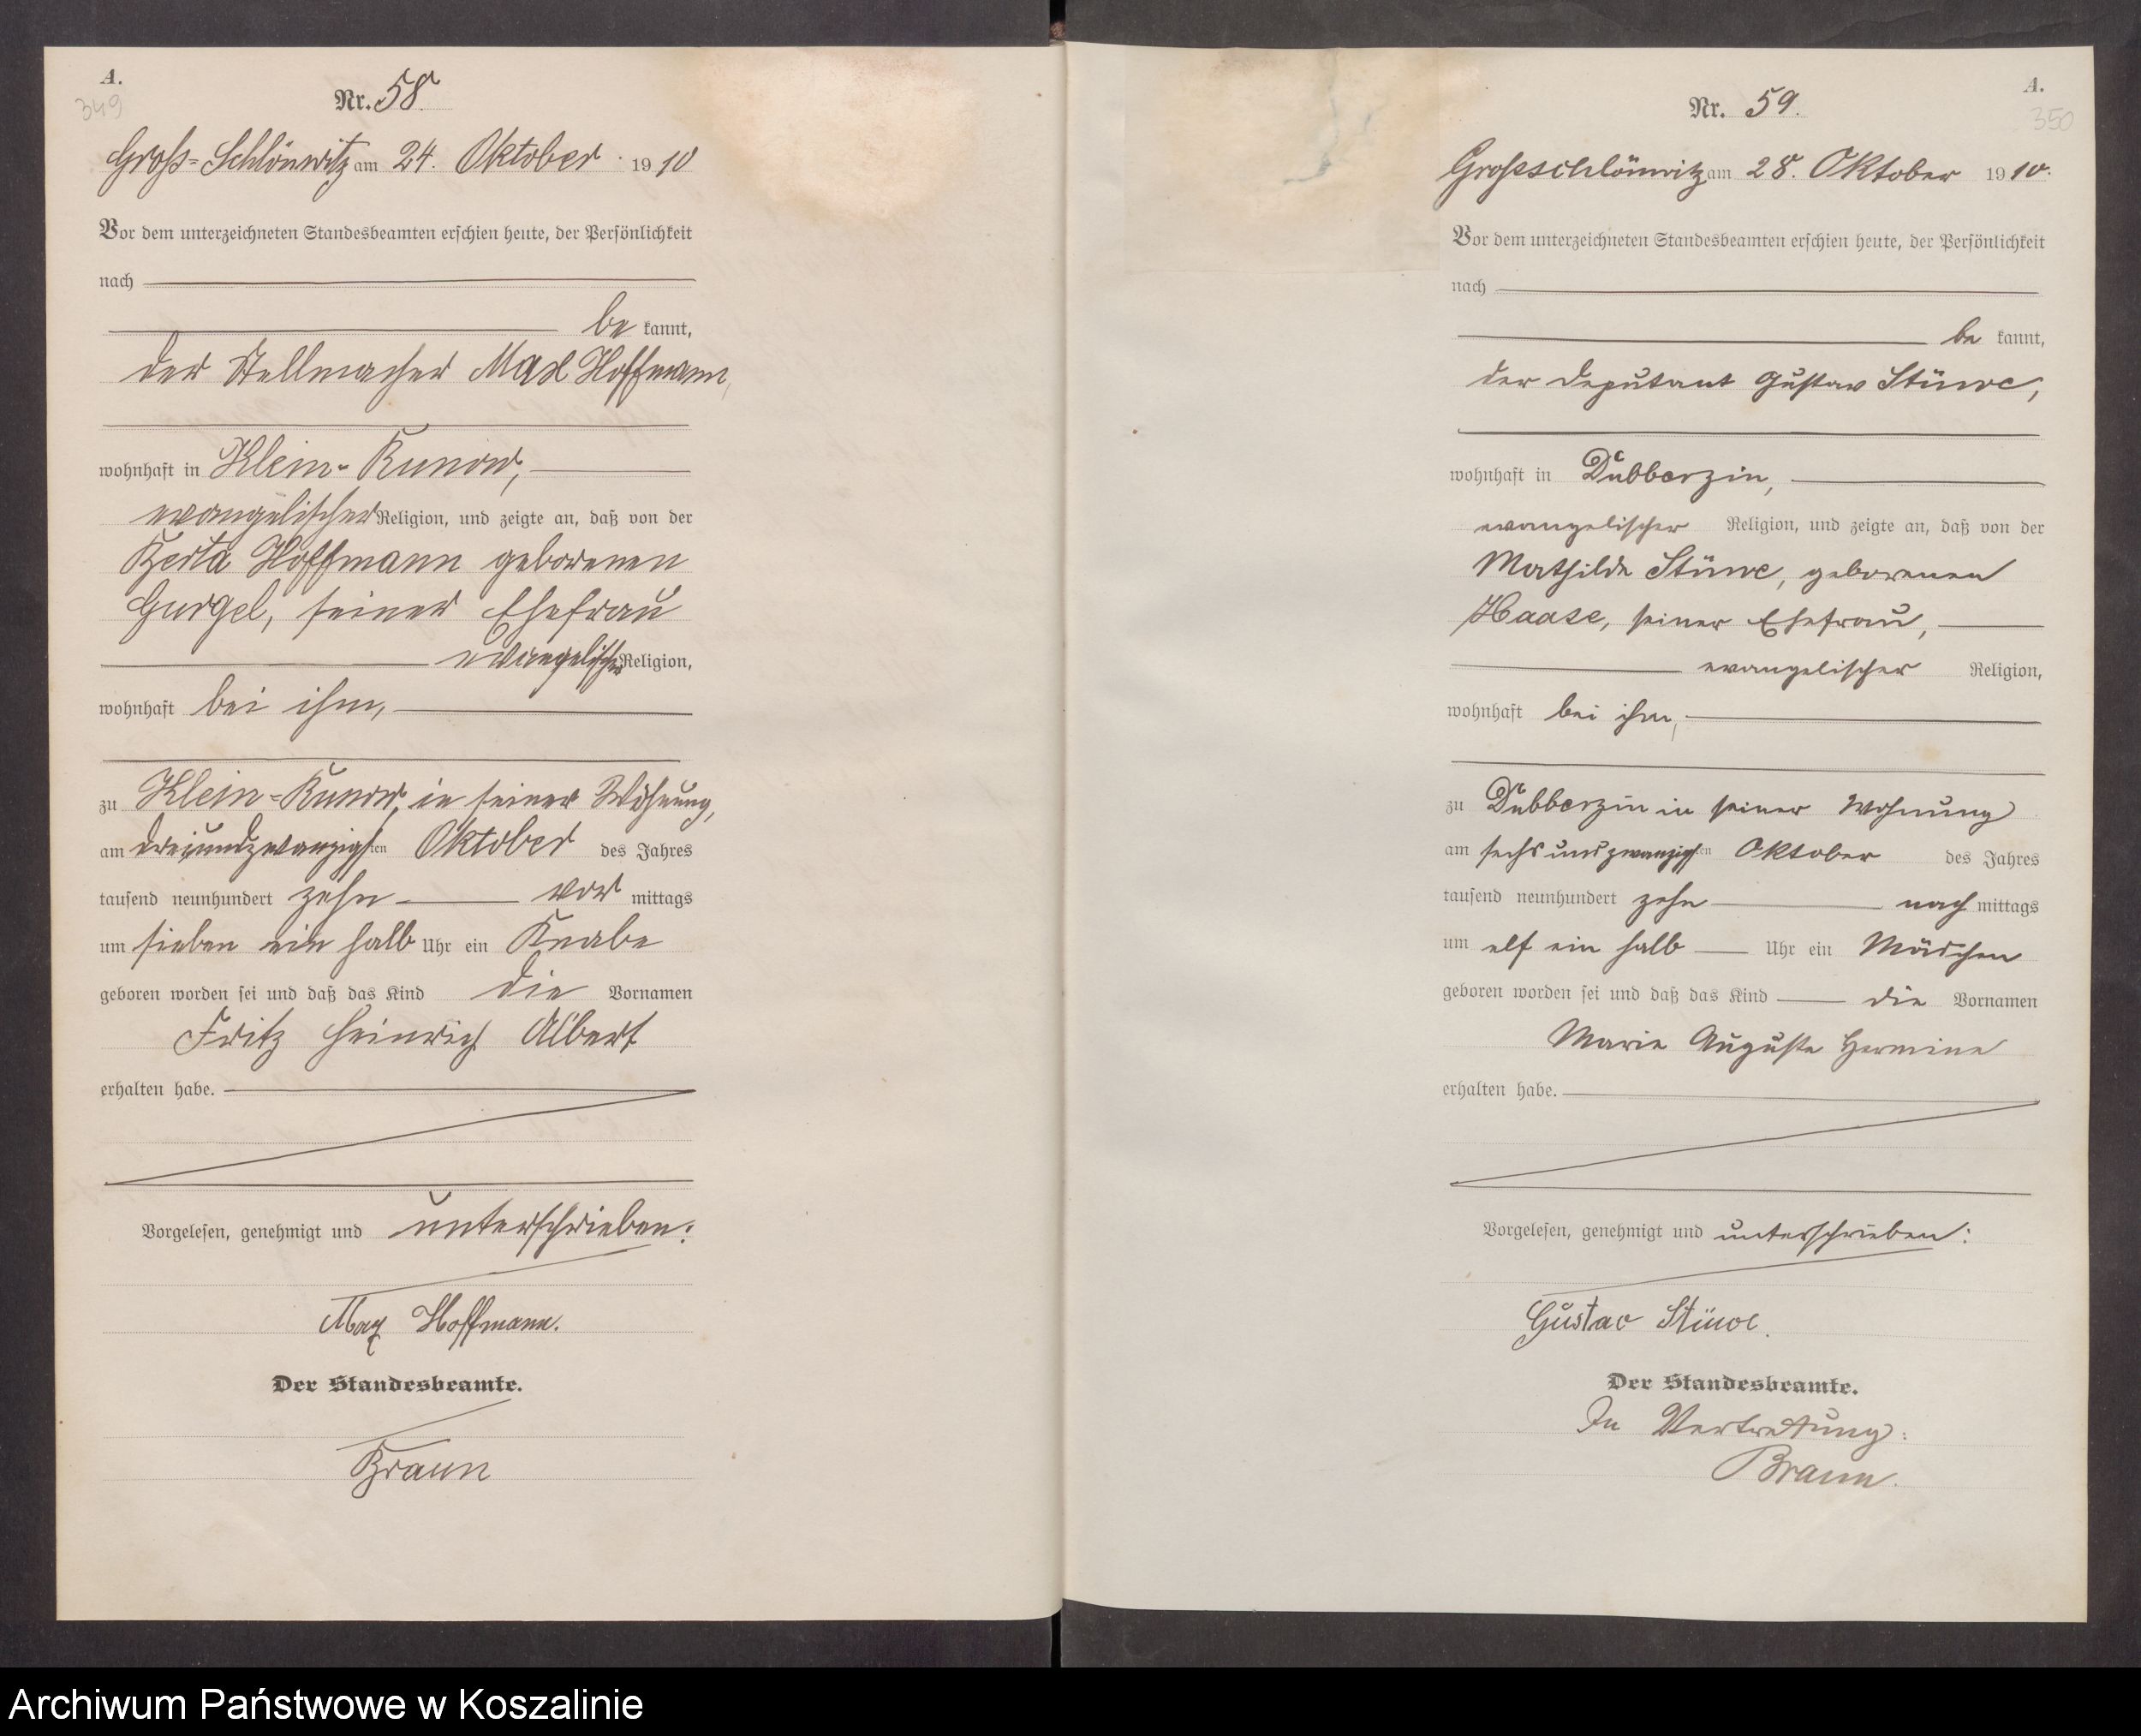 A.
349
Nr. 58.
Groß-Schlönwitz am 24. Oktober 1910
Vor dem unterzeichneten Standesbeamten erschien heute, der Persönlichkeit
nach
be kannt,
der Stellmacher Max Hoffmann,
wohnhaft in Klein-Runow,
evangelischer Religion, und zeigte an, daß von der
Berta Hoffmann geborenen
Gurgel, seiner Ehefrau
evangelischer Religion,
wohnhaft bei ihm,
zu Klein-Runow, in seiner Wohnung,
am dreiundzwanzigsten Oktober des Jahres
tausend neunhundert zehn vor mittags
um sieben ein halb Uhr ein Knabe
geboren worden sei und daß das Kind die Vornamen
Fritz Heinrich Albert
erhalten habe.
Vorgelesen, genehmigt und unterschrieben:
Max Hoffmann.
Der Standesbeamte.
Braun
A.
350
Nr. 59.
Großschlönwitz am 28. Oktober 1910.
Vor dem unterzeichneten Standesbeamten erschien heute, der Persönlichkeit
nach
be kannt,
der Deputant Gustav Stüwe,
wohnhaft in Dübberzin,
evangelischer Religion, und zeigte an, daß von der
Mathilde Stüwe, geborenen
Haase, seiner Ehefrau,
evangelischer Religion,
wohnhaft bei ihm,
zu Dübberzin in seiner Wohnung
am sechsundzwanzigsten Oktober des Jahres
tausend neunhundert zehn nach mittags
um elf ein halb Uhr ein Mädchen
geboren worden sei und daß das Kind die Vornamen
Marie Auguste Hermine
erhalten habe.
Vorgelesen, genehmigt und unterschrieben:
Gustav Stüwe.
Der Standesbeamte.
In Vertretung:
Braun.
Archiwum Państwowe w Koszalinie